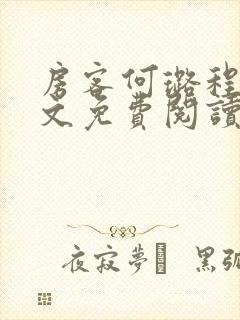 房客何璐程
文免費閱讀
夜寂夢 黑弧